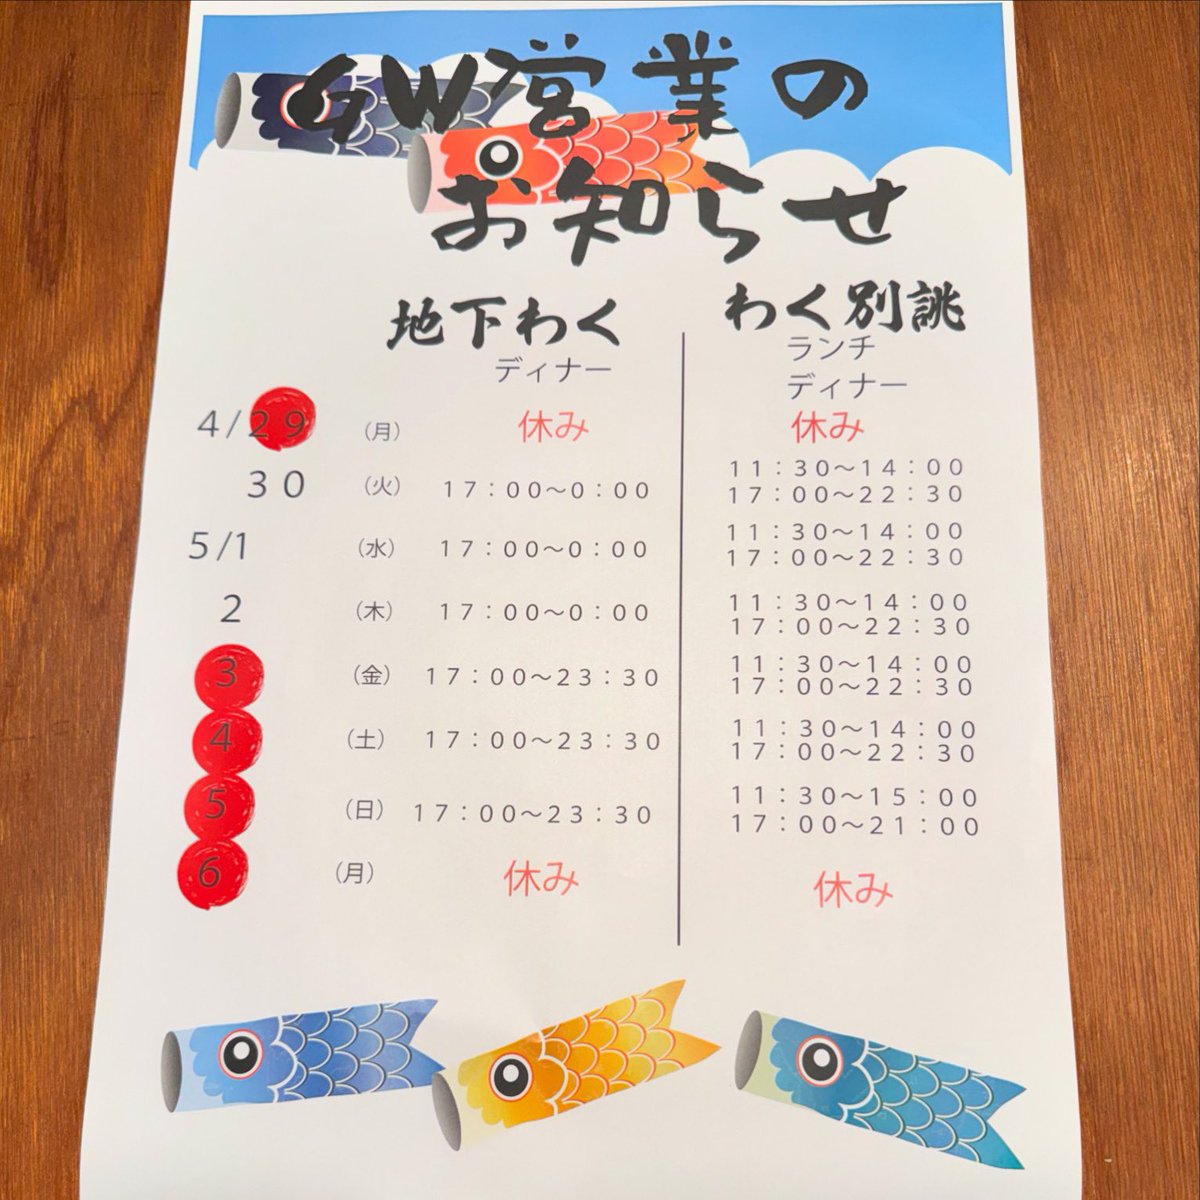 GW営業の
お知らせ
地下わく
ディナー
わく別誂
ランチ
ディナー
4/29 （月） 休み 休み
30 （火） 17：00～0：00 11：30～14：00
17：00～22：30
5/1 （水） 17：00～0：00 11：30～14：00
17：00～22：30
2 （木） 17：00～0：00 11：30～14：00
17：00～22：30
3 （金） 17：00～23：30 11：30～14：00
17：00～22：30
4 （土） 17：00～23：30 11：30～14：00
17：00～22：30
5 （日） 17：00～23：30 11：30～15：00
17：00～21：00
6 （月） 休み 休み